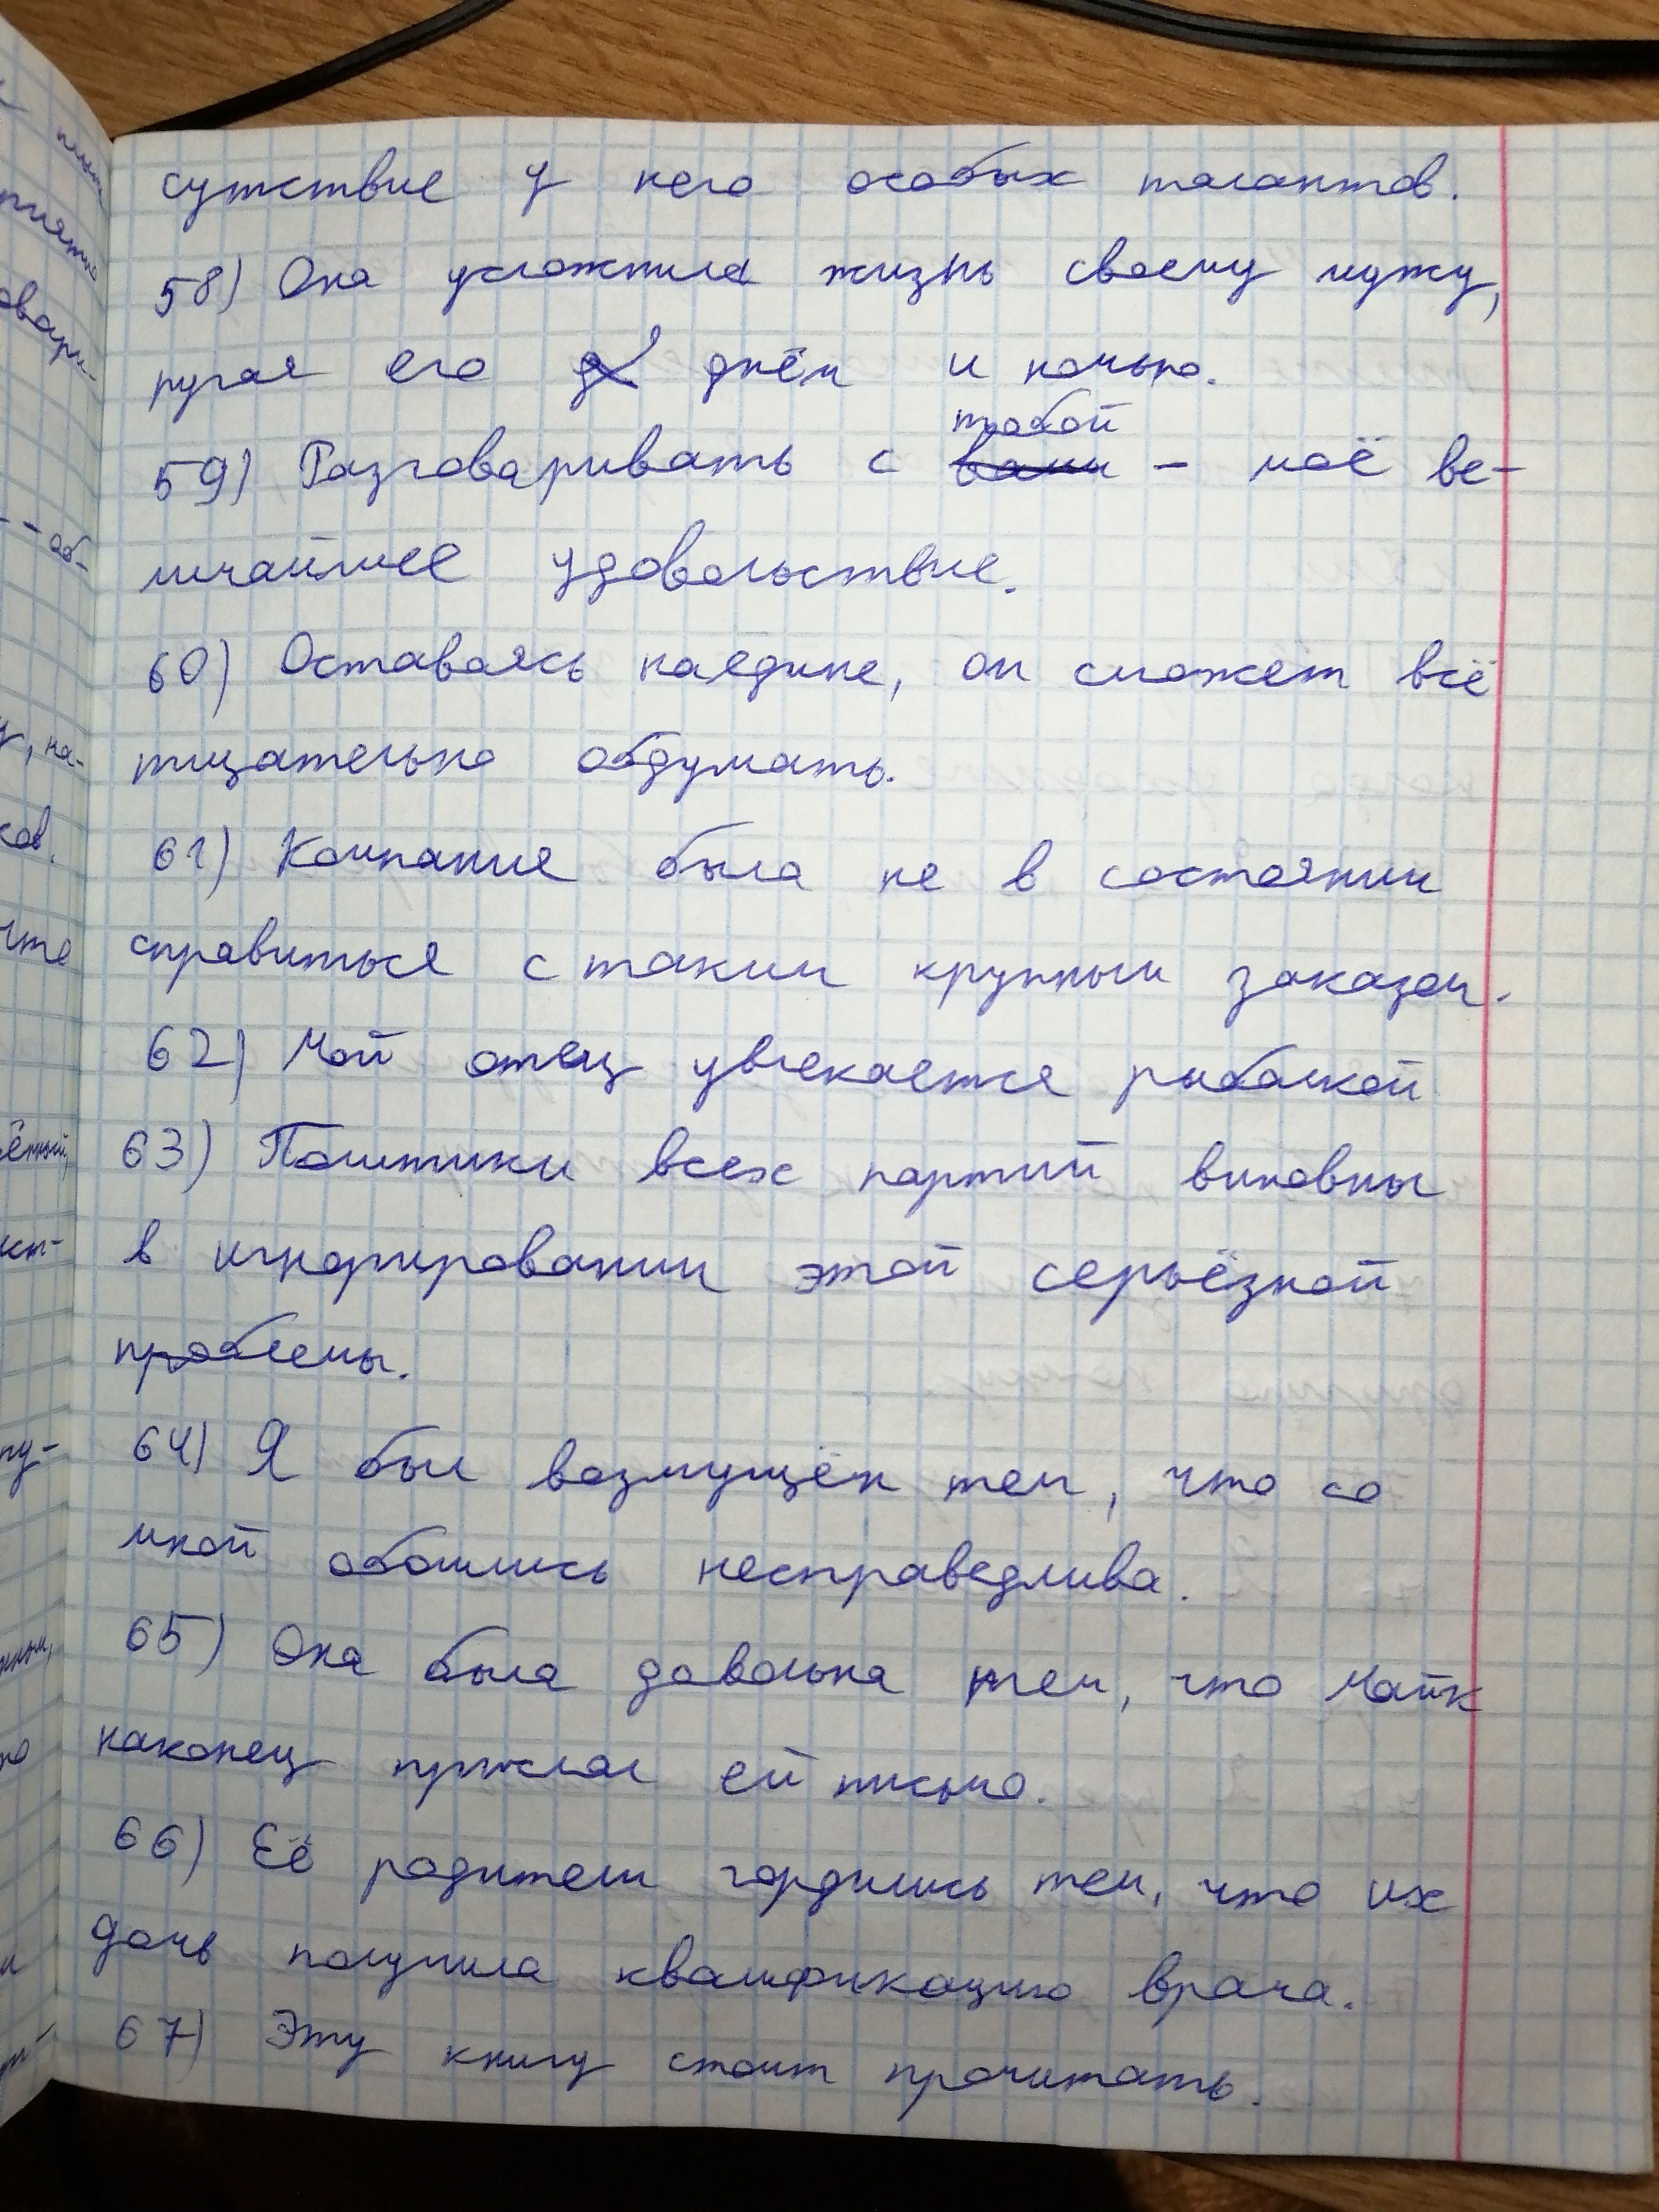 сутствие у него особых талантов.
58) Она усложнила жизнь своему мужу,
ругая его днём и ночью.
тобой
59) Разговаривать с вами - моё ве-
личайшее удовольствие.
60) Оставаясь наедине, он сможет всё
тщательно обдумать.
61) Компания была не в состоянии
справиться с таким крупным заказом.
62) Мой отец увлекается рыбалкой
63) Политики всех партий виновны
в игнорировании этой серьёзной
проблемы.
64) Я был возмущён тем, что со
мной обошлись несправедливо.
65) Она была довольна тем, что Майк
наконец прислал ей письмо.
66) Её родители гордились тем, что их
дочь получила квалификацию врача.
67) Эту книгу стоит прочитать.